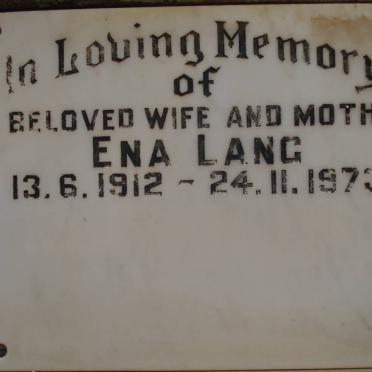 In Loving Memory
of
BELOVED WIFE AND MOTH
ENA LANG
13.6.1912 - 24.11.1973